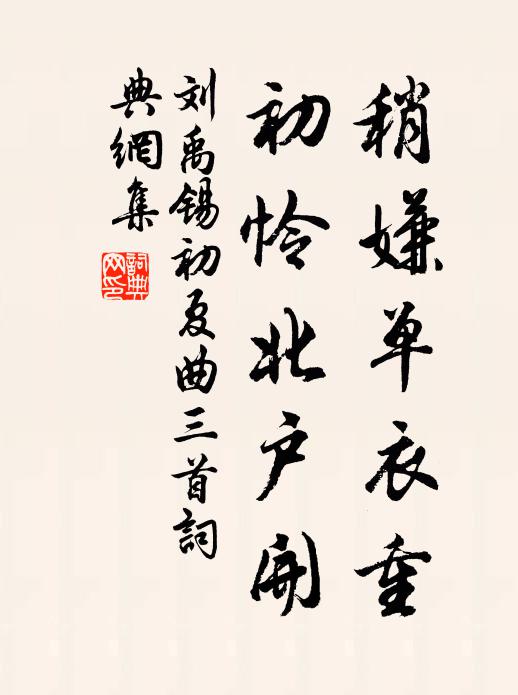 稍嫌单衣重
初怜北户開
刘禹锡初夏曲三首詞
典網集
詞典
网印